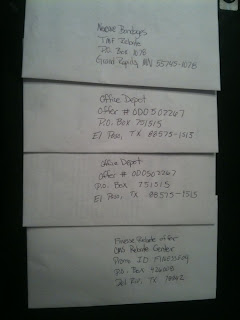 Rebate
P.O. Box 1078
Grand Rapids, MN 55745-1078
Office Depot
Offer # 000502267
P.O. Box 751515
El Paso, TX 88575-1515
Office Depot
Offer # 000502267
P.O. Box 751515
El Paso, TX 88575-1515
Finesse Rebate offer
CMS Rebate Center
Promo ID
P.O. Box 426008
Del Rio, TX